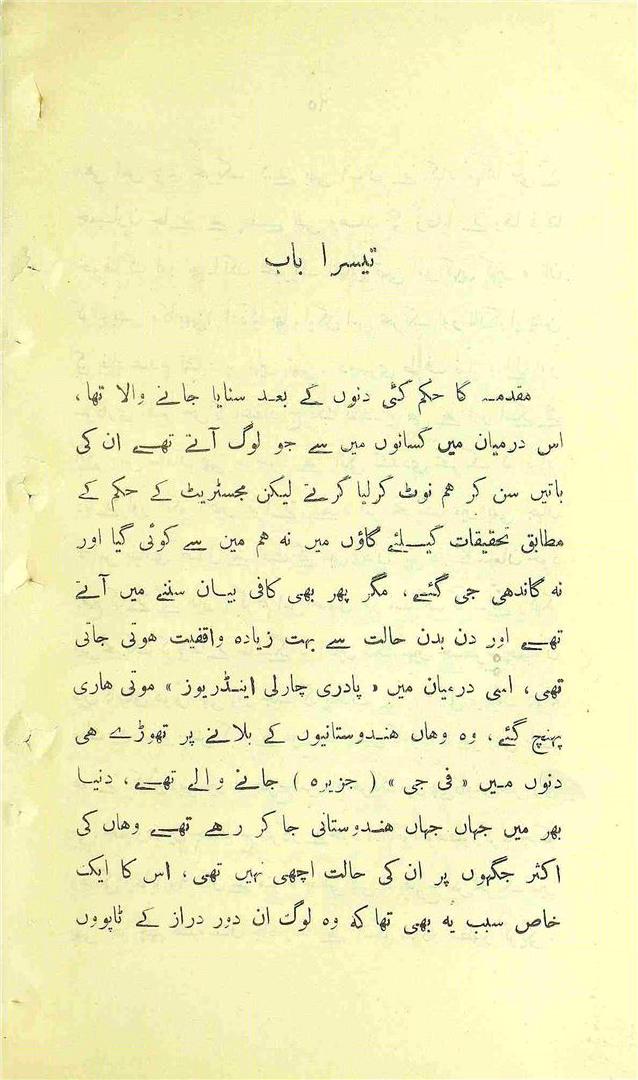 تیسرا باب
مقدمہ کا حکم کئی دنوں کے بعد سنایا جانے والا تھا،
اس درمیان میں کسانوں میں سے جو لوگ آتے تھے ان کی
باتیں سن کر ہم نوٹ کرلیا کرتے لیکن مجسٹریٹ کے حکم کے
مطابق تحقیقات کیلئے گاؤں میں نہ ہم مین سے کوئی گیا اور
نہ گاندھی جی گئے، مگر پھر بھی کافی بیان سننے میں آتے
تھے اور دن بدن حالت سے بہت زیادہ واقفیت ہوتی جاتی
تھی، اسی درمیان میں « پادری چارلی اینڈریوز » موتی ہاری
پہنچ گئے، وہ وہاں ہندوستانیوں کے بلانے پر تھوڑے ہی
دنوں میں « فی جی » ( جزیرہ ) جانے والے تھے، دنیا
بھر میں جہاں جہاں ہندوستانی جا کر رہے تھے وہاں کی
اکثر جگہوں پر ان کی حالت اچھی نہیں تھی، اس کا ایک
خاص سبب یہ بھی تھا کہ وہ لوگ ان دور دراز کے ٹاپووں